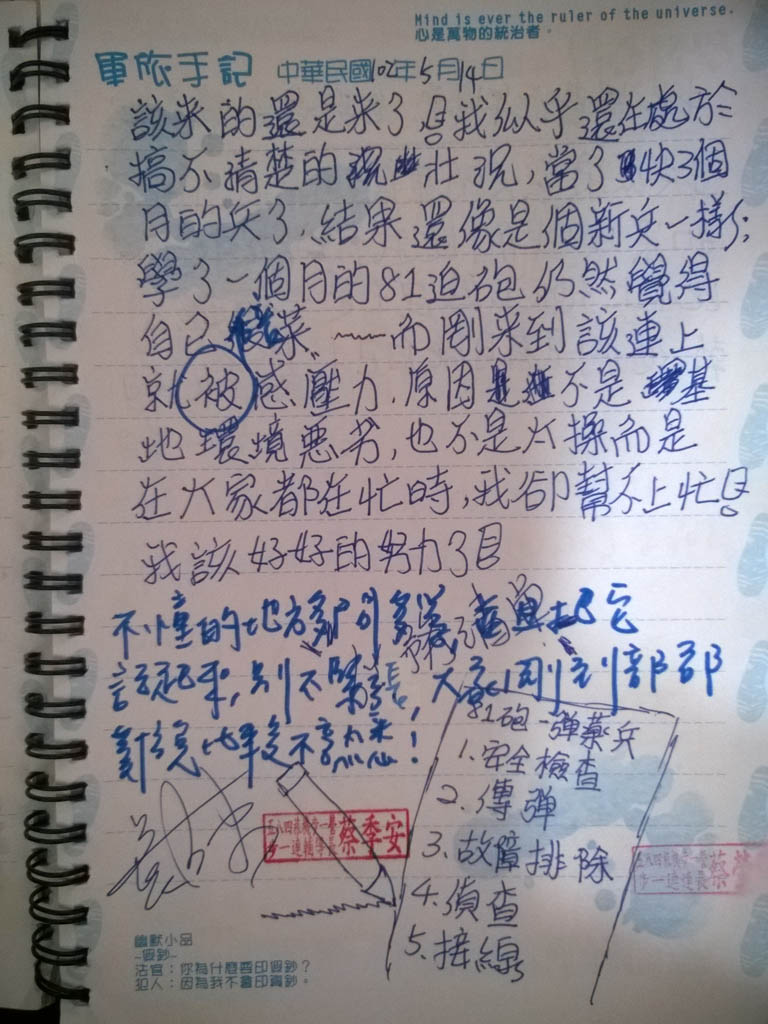 Mind is ever the ruler of the universe.
心是萬物的統治者。
軍旅手記 中華民國102年5月14日
該来的還是来了,我似乎還在處於
搞不清楚的壮況,當了快3個
月的兵了,結果還像是個新兵一樣;
學了一個月的81迫砲仍然覺得
自己很菜~~而剛来到該連上
就被感壓力,原因不是基
地環境惡劣,也不是太操而是
在大家都在忙時,我卻幫不上忙!
我該好好的努力了
不懂的地方
把它
記起来,別不緊張,大家剛到部部
對兒比較不熟悉!
81砲-彈藥兵
1.安全檢查
2.傳彈
3.故障排除
4.偵查
5.接線
步一連輔導長 蔡季安
步一連連長 蔡
幽默小品
~假鈔~
法官:你為什麼要印假鈔?
犯人:因為我不會印真鈔。